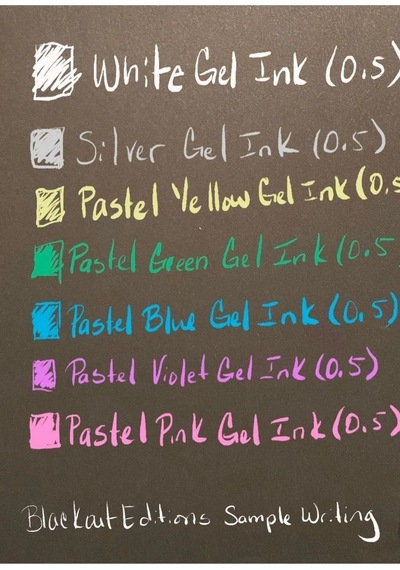 White Gel Ink (0.5)
Silver Gel Ink (0.5)
Pastel Yellow Gel Ink (0.5
Pastel Green Gel Ink (0.5
Pastel Blue Gel Ink (0.5)
Pastel Violet Gel Ink (0.5)
Pastel Pink Gel Ink (0.5)
Blackout Editions Sample Writing